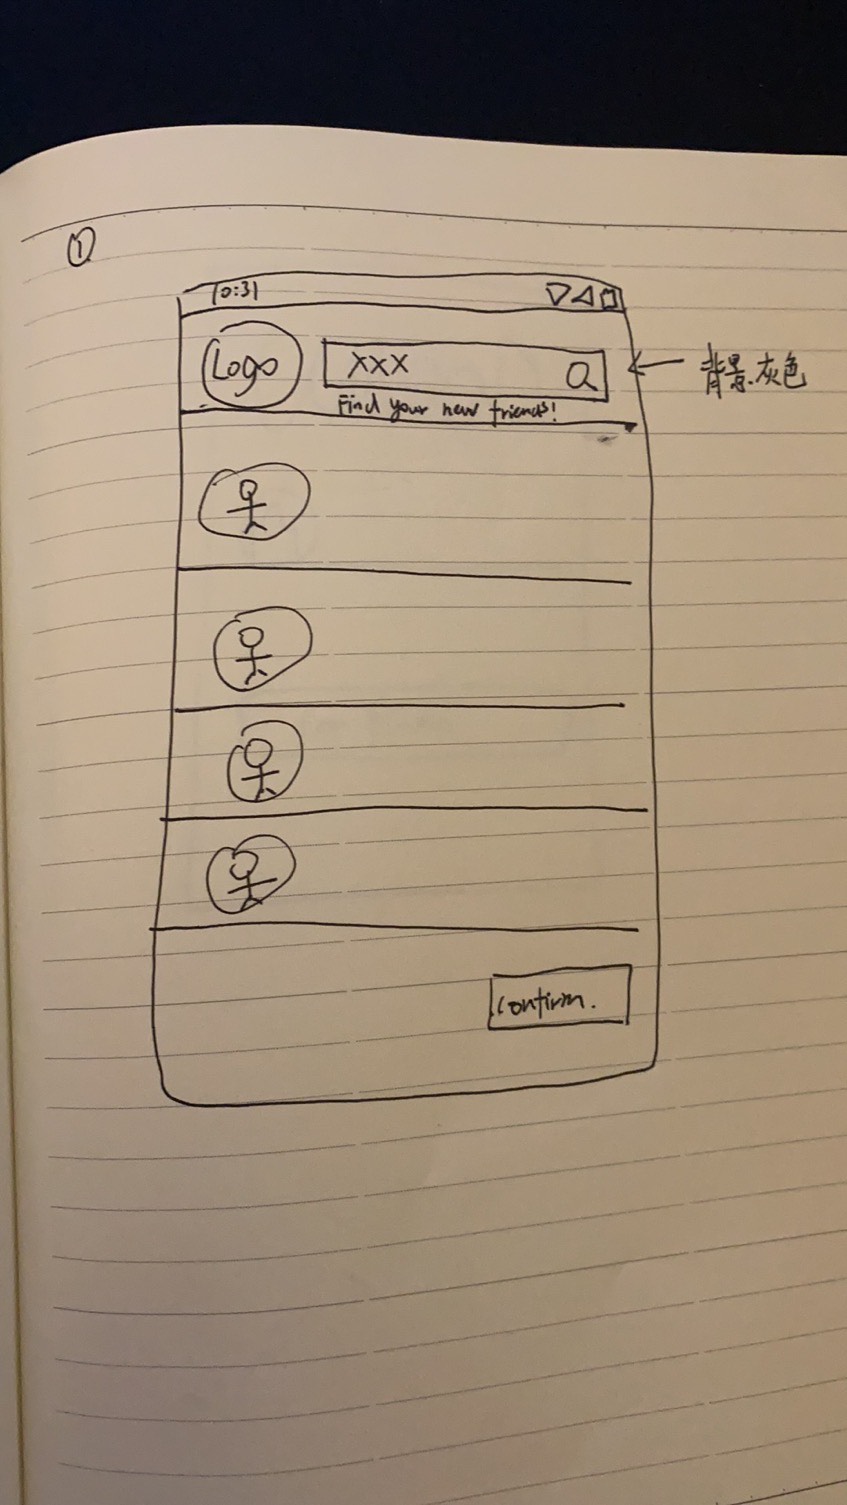 ①
10:31
Logo
xxx
背景灰色
Find your new friends!
confirm.